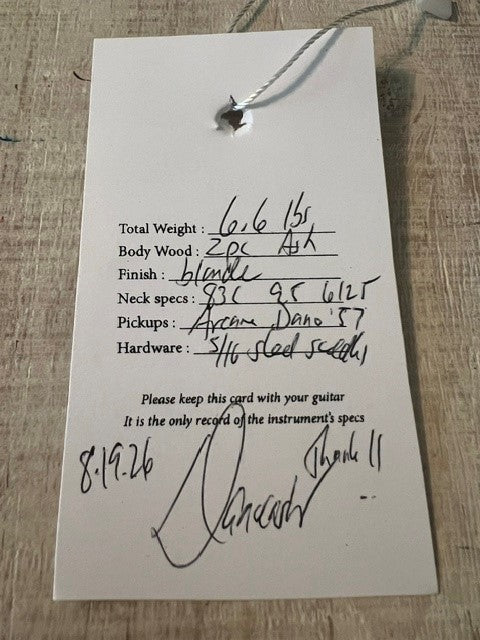 Total Weight : 6.6 lbs
Body Wood : 2pc Ash
Finish : blonde
Neck specs : 83C 9.5 6125
Pickups : Arcane Dano '57
Hardware : 5/16 steel
Please keep this card with your guitar
It is the only record of the instrument's specs
8.19.26
Thank !!